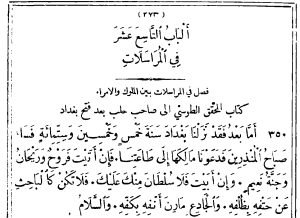 (٢٧٣)
أَلْبَابُ التَّاسِعَ عَشَرَ
فِي الْمُرَاسَلَاتِ
فصل في المراسلات بين الملوك والامراء
كتاب المحقّق الطوسيّ الى صاحب حلب بعد فتح بغداد
٣٥٠ أَمَّا بَعْدُ فَقَدْ نَزَلْنَا بَغْدَادَ سَنَةَ خَمْسٍ وَخَمْسِينَ وَسِتِّمِائَةٍ فَسَاءَ
صَبَاحُ الْمُنْذَرِينَ فَدَعَوْنَا مَالِكَهَا إِلَى طَاعَتِنَا فَإِنْ أَتَيْتَ فَرَوْحٌ وَرَيْحَانٌ
وَجَنَّةُ نَعِيمٍ. وَإِنْ أَبَيْتَ فَلَا سُلْطَانَ مِنْكَ عَلَيْكَ. فَلَا تَكُنْ كَالْبَاحِثِ
عَنْ حَتْفِهِ بِظِلْفِهِ. وَالْجَادِعِ مَارِنَ أَنْفِهِ بِكَفِّهِ. وَالسَّلَامُ